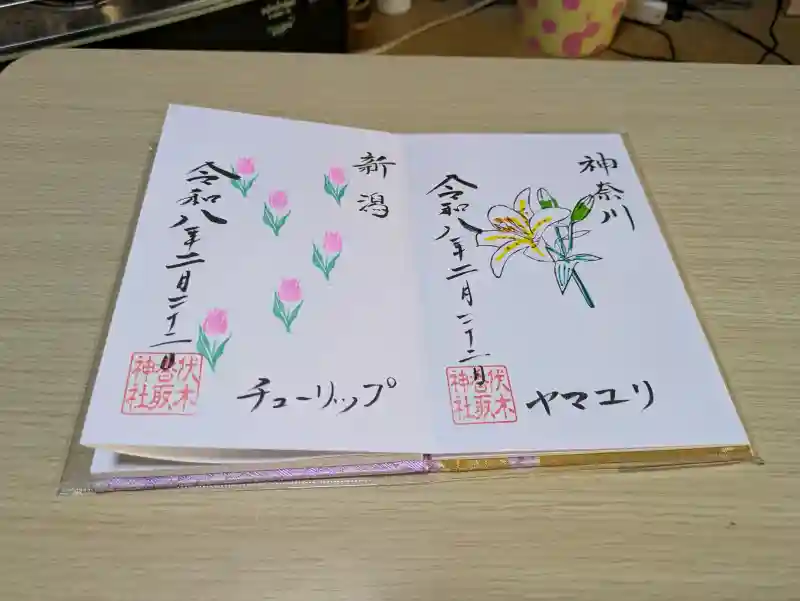 神奈川
令和八年二月二十二日
伏木
香取
神社
ヤマユリ
新潟
令和八年二月二十二日
伏木
香取
神社
チューリップ